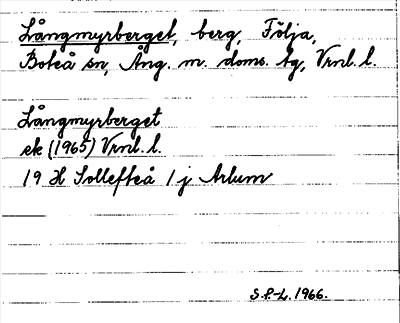 Långmyrberget, berg, Följa,
Boteå sn, Ång. m. doms. tg, Vrnl. l.
Långmyrberget
ek (1965) Vrnl. l.
19 H Sollefteå 1 j Arlum
S.P.-L. 1966.